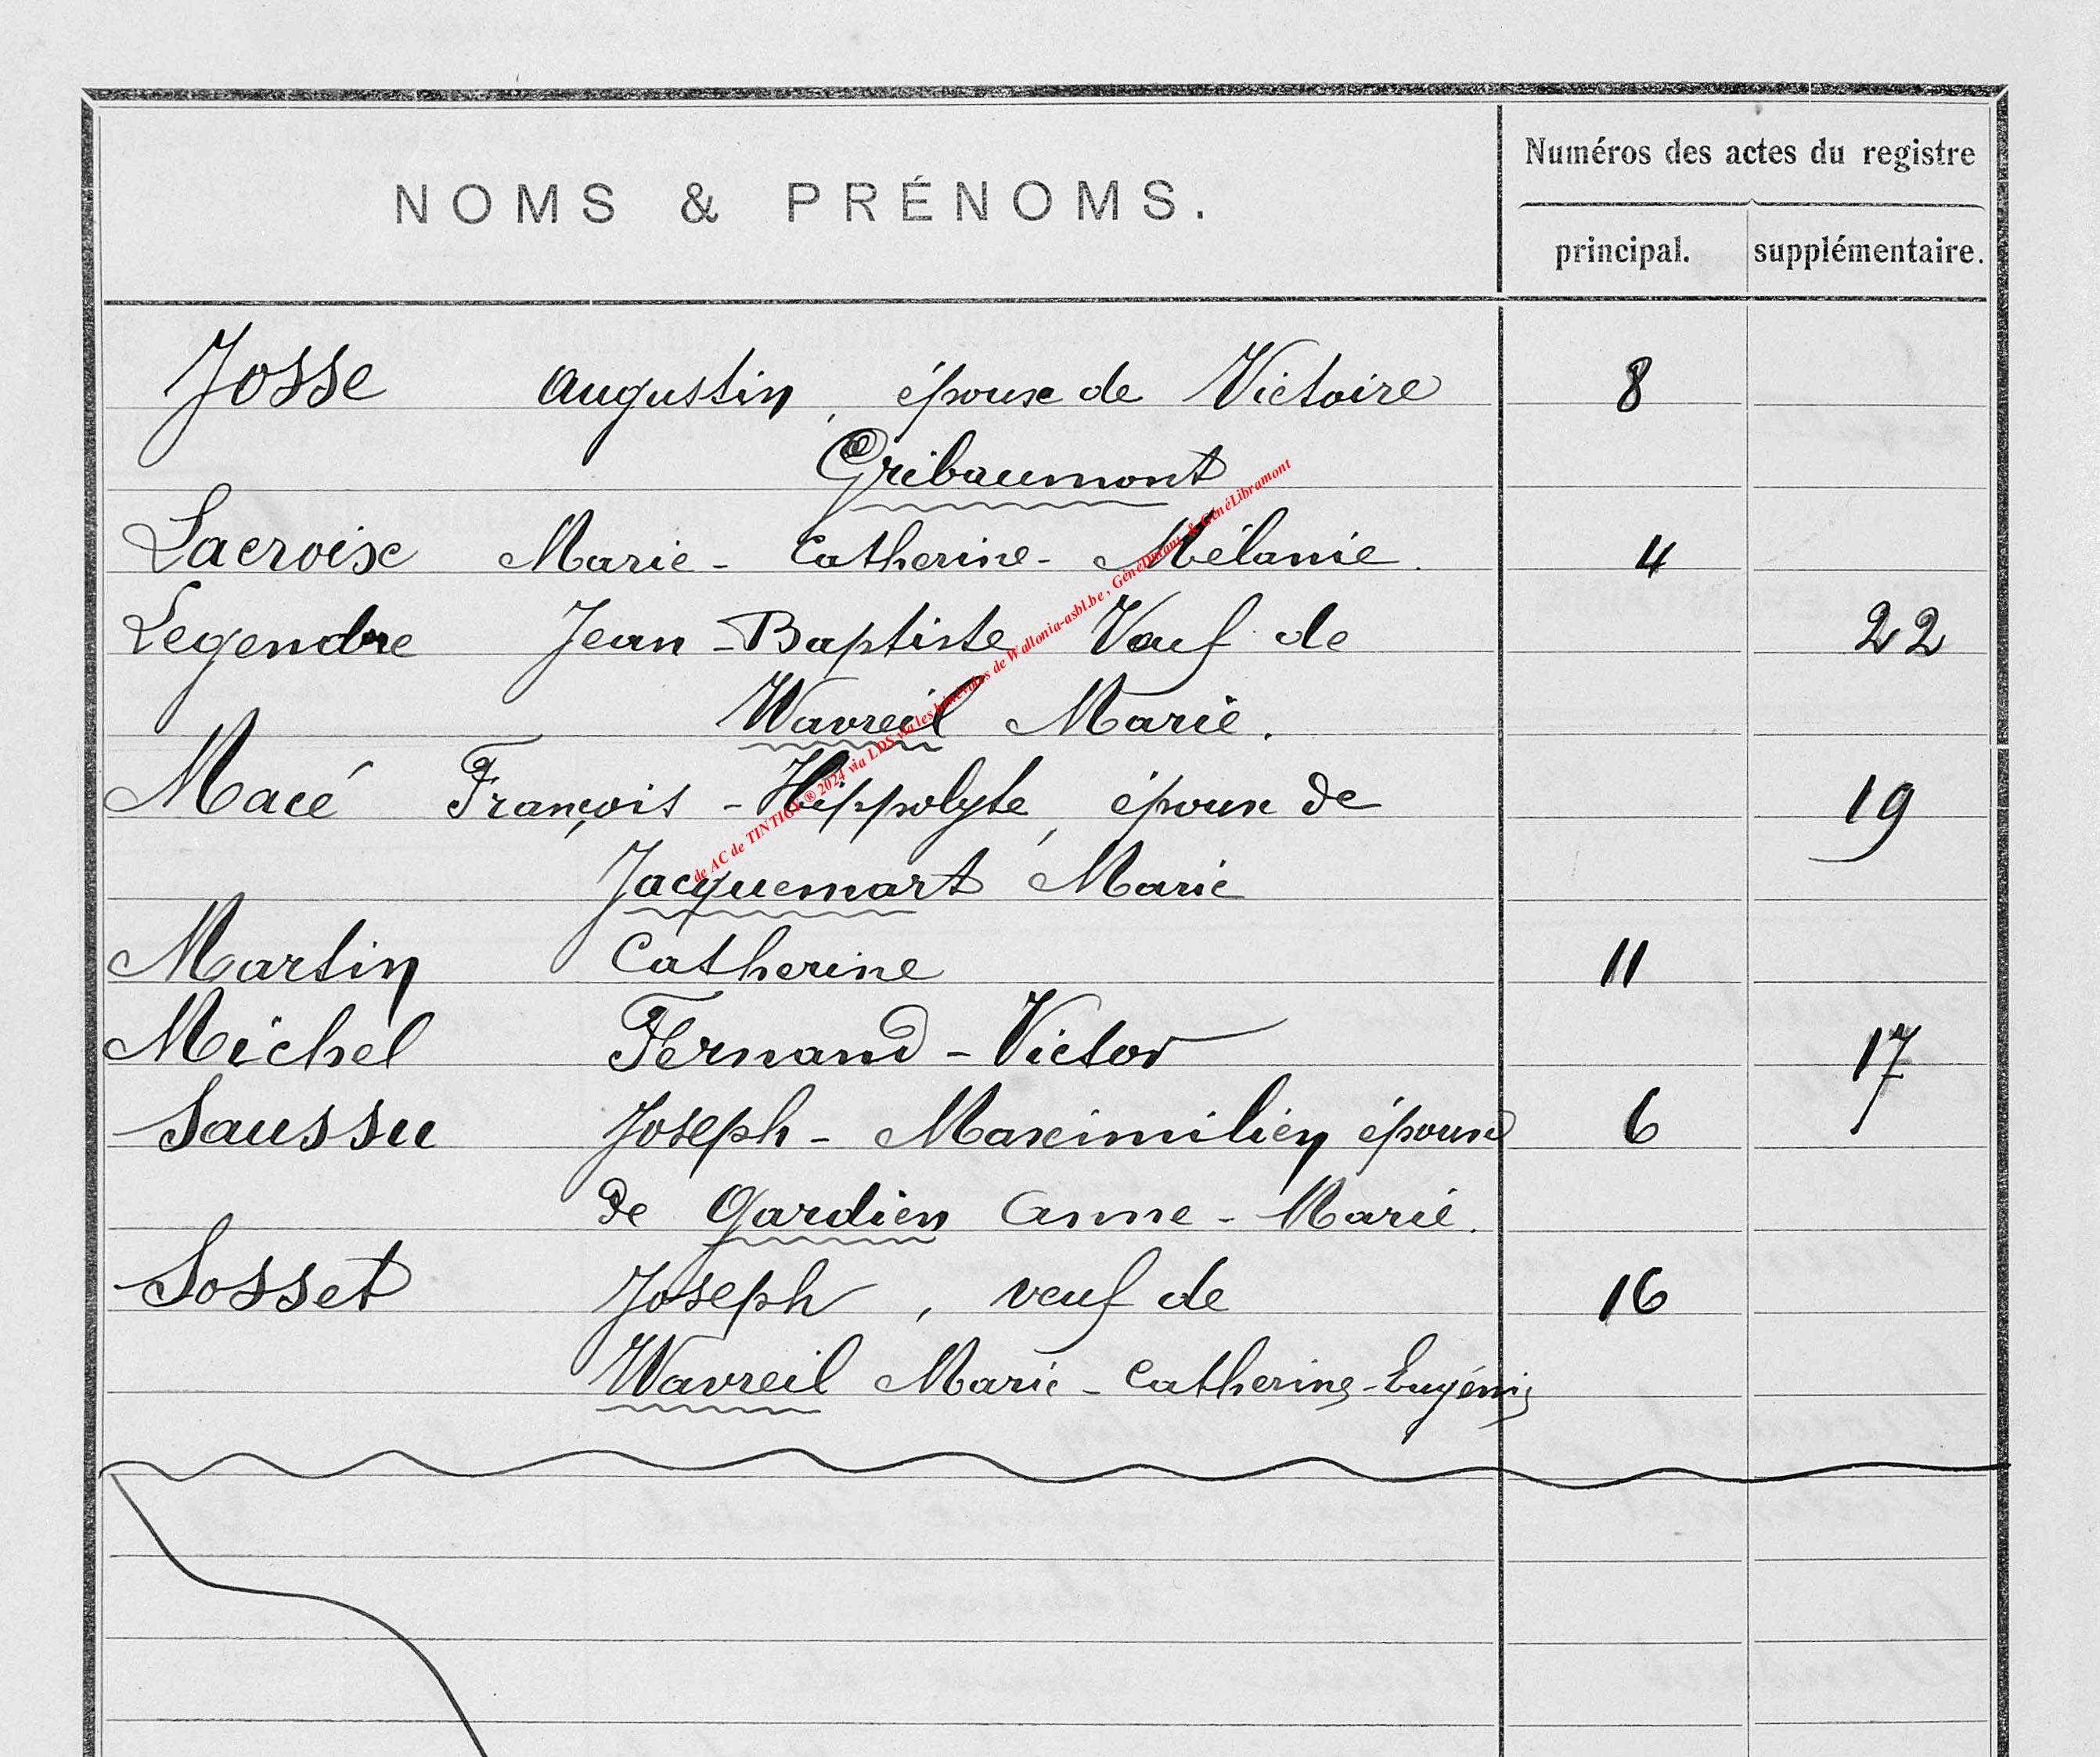 NOMS & PRÉNOMS.
Numéros des actes du registre
principal. supplémentaire.
Josse Augustin, époux de Victoire 8
Gribaumont
Lacroix Marie - Catherine - Mélanie. 4
Legendre Jean - Baptiste Veuf de 22
Wavreil Marie.
Macé François - Hippolyte, époux de 19
Jacquemart Marie
Martin Catherine 11
Michel Fernand - Victor 17
Saussu Joseph - Maximilien époux 6
de Gardien Anne - Marie.
Sosset Joseph, veuf de 16
Wavreil Marie - Catherine - Eugénie
de AC de TINTIGNY ® 2024 via LDS via les bénévoles de Wallonia-asbl.be, GénéDinant & GénéLibramont